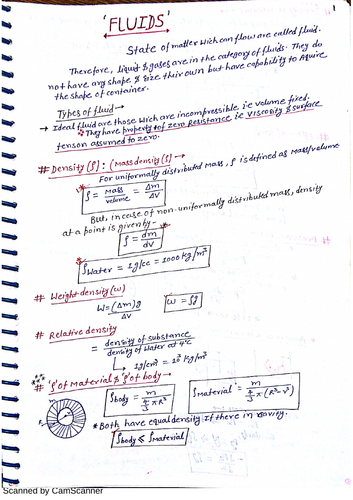 1
'FLUIDS'
State of matter which can flow are called fluid.
Therefore, liquid & gases are in the category of fluids. They do
not have any shape & size their own but have capability to Aquire
the shape of container.
Types of fluid →
→ Ideal fluid are those which are incompressible ie volume fixed.
* They have property of zero Resistance ie Viscosity & surface
tension assumed to zero.
# Density (ρ) : (Mass density) →
For uniformally distributed mass, ρ is defined as Mass/volume
* ρ = mass/volume = Δm/ΔV
But, in case of non-uniformally distributed mass, density
at a point is given by -
* ρ = dm/dV
* ρwater = 1g/cc = 1000 kg/m³
# Weight density (w)
W = (Δm)g/ΔV W = ρg
# Relative density
= density of substance/density of water at 4°C
→ 1g/cm³ = 10³ kg/m³
# 'ρ' of Material & 'ρ' of body →
ρbody = m/(4/3 πR³) ρmaterial = m/(4/3 π(R³-r³))
* Both have equal density if there in cavity.
ρbody ≤ ρmaterial
Scanned by CamScanner